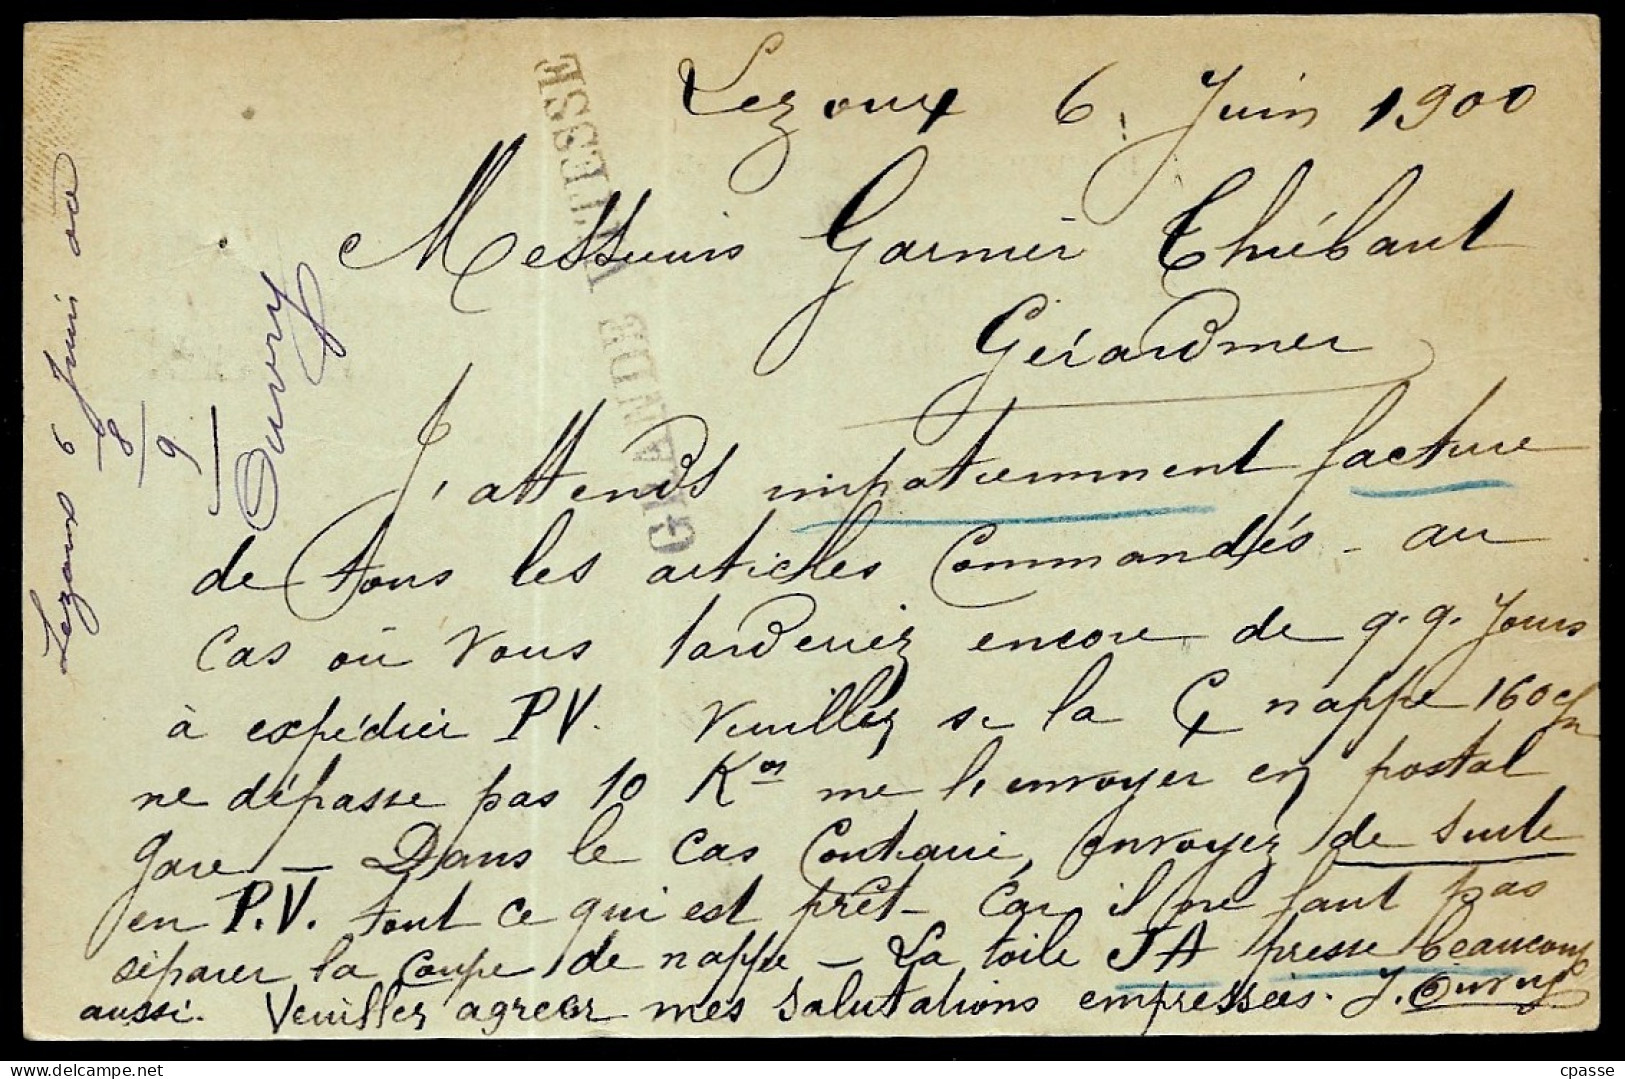 Lezoux 6 Juin 1900
Messieurs Garnier Thiébaut
Gérardmer
J'attends impatiemment facture
de tous les articles commandés - au
cas où vous tarderiez encore de q.q. Jours
à expédier PV. Veuillez si la nappe 160
ne dépasse pas 10 Kos me l'envoyer en postal
gare - Dans le cas contraire, envoyez de suite
en P.V. tout ce qui est prêt - Car il ne faut pas
séparer la coupe de nappe - La toile JA presse beaucoup
aussi. Veuillez agréer mes salutations empressées. J. Ouvry
Lezoux 6 Juin
8/9
Ouvry
GRANDE VITESSE
cpasse
delcampe.net